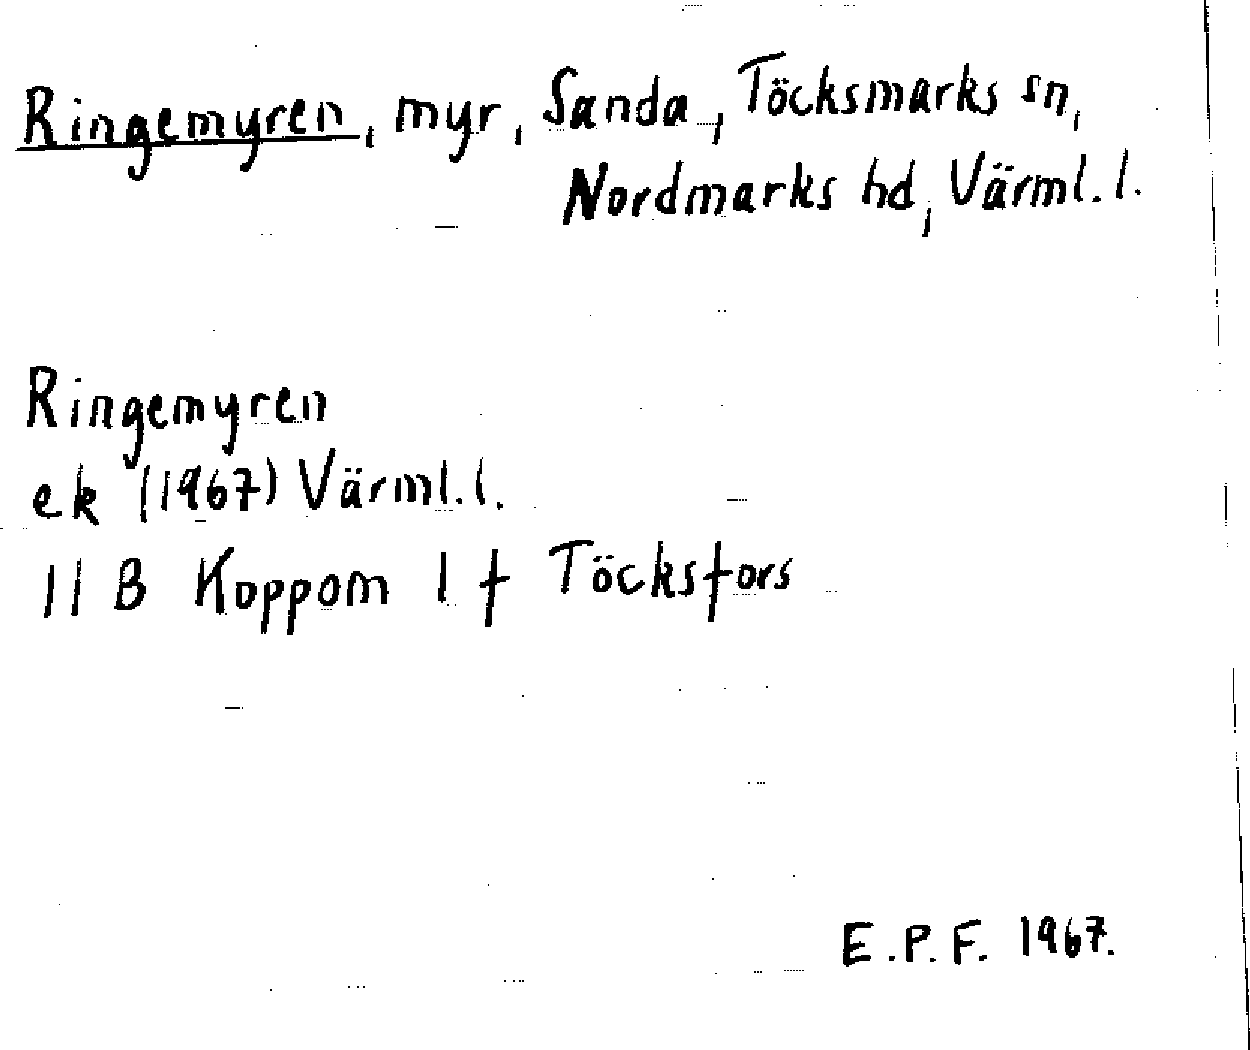 Ringemyren, myr, Sanda, Töcksmarks sn,
Nordmarks hd, Värml. l.
Ringemyren
ek (1967) Värml. l.
11 B Koppom 1 f Töcksfors
E.P.F. 1967.